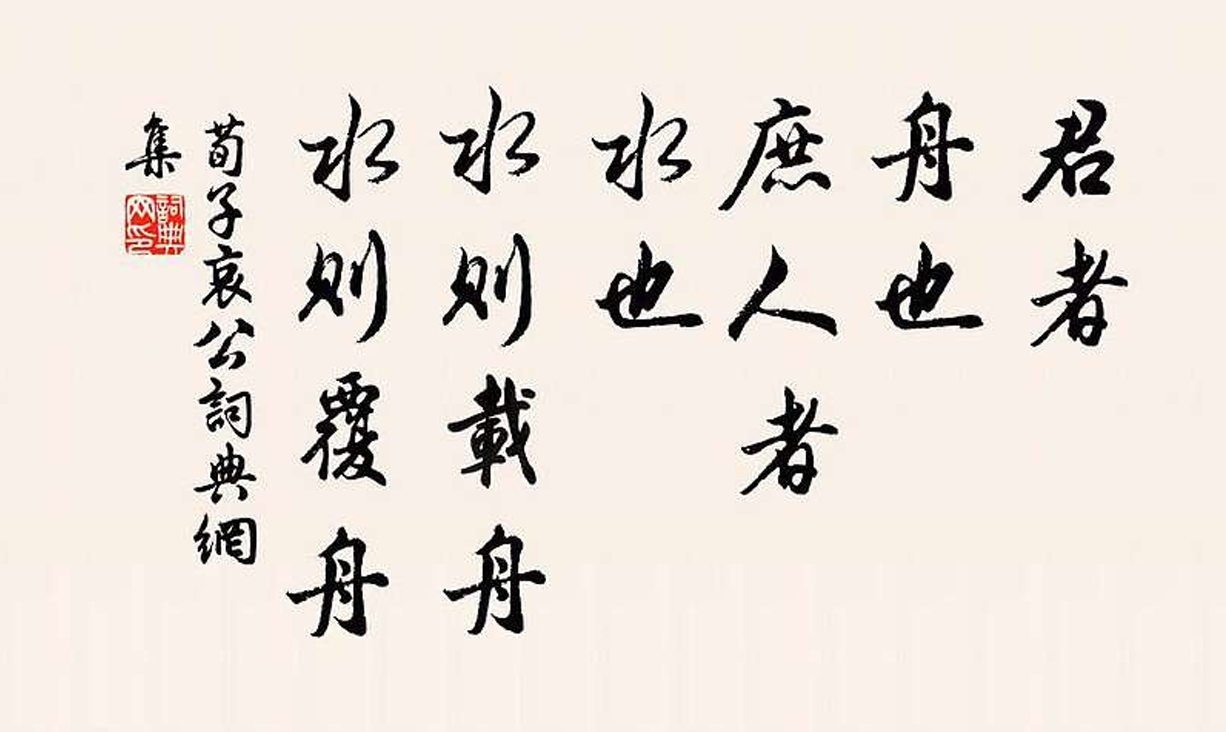 君者
舟也
庶人者
水也
水則載舟
水則覆舟
荀子哀公詞典網
集
詞典
网印